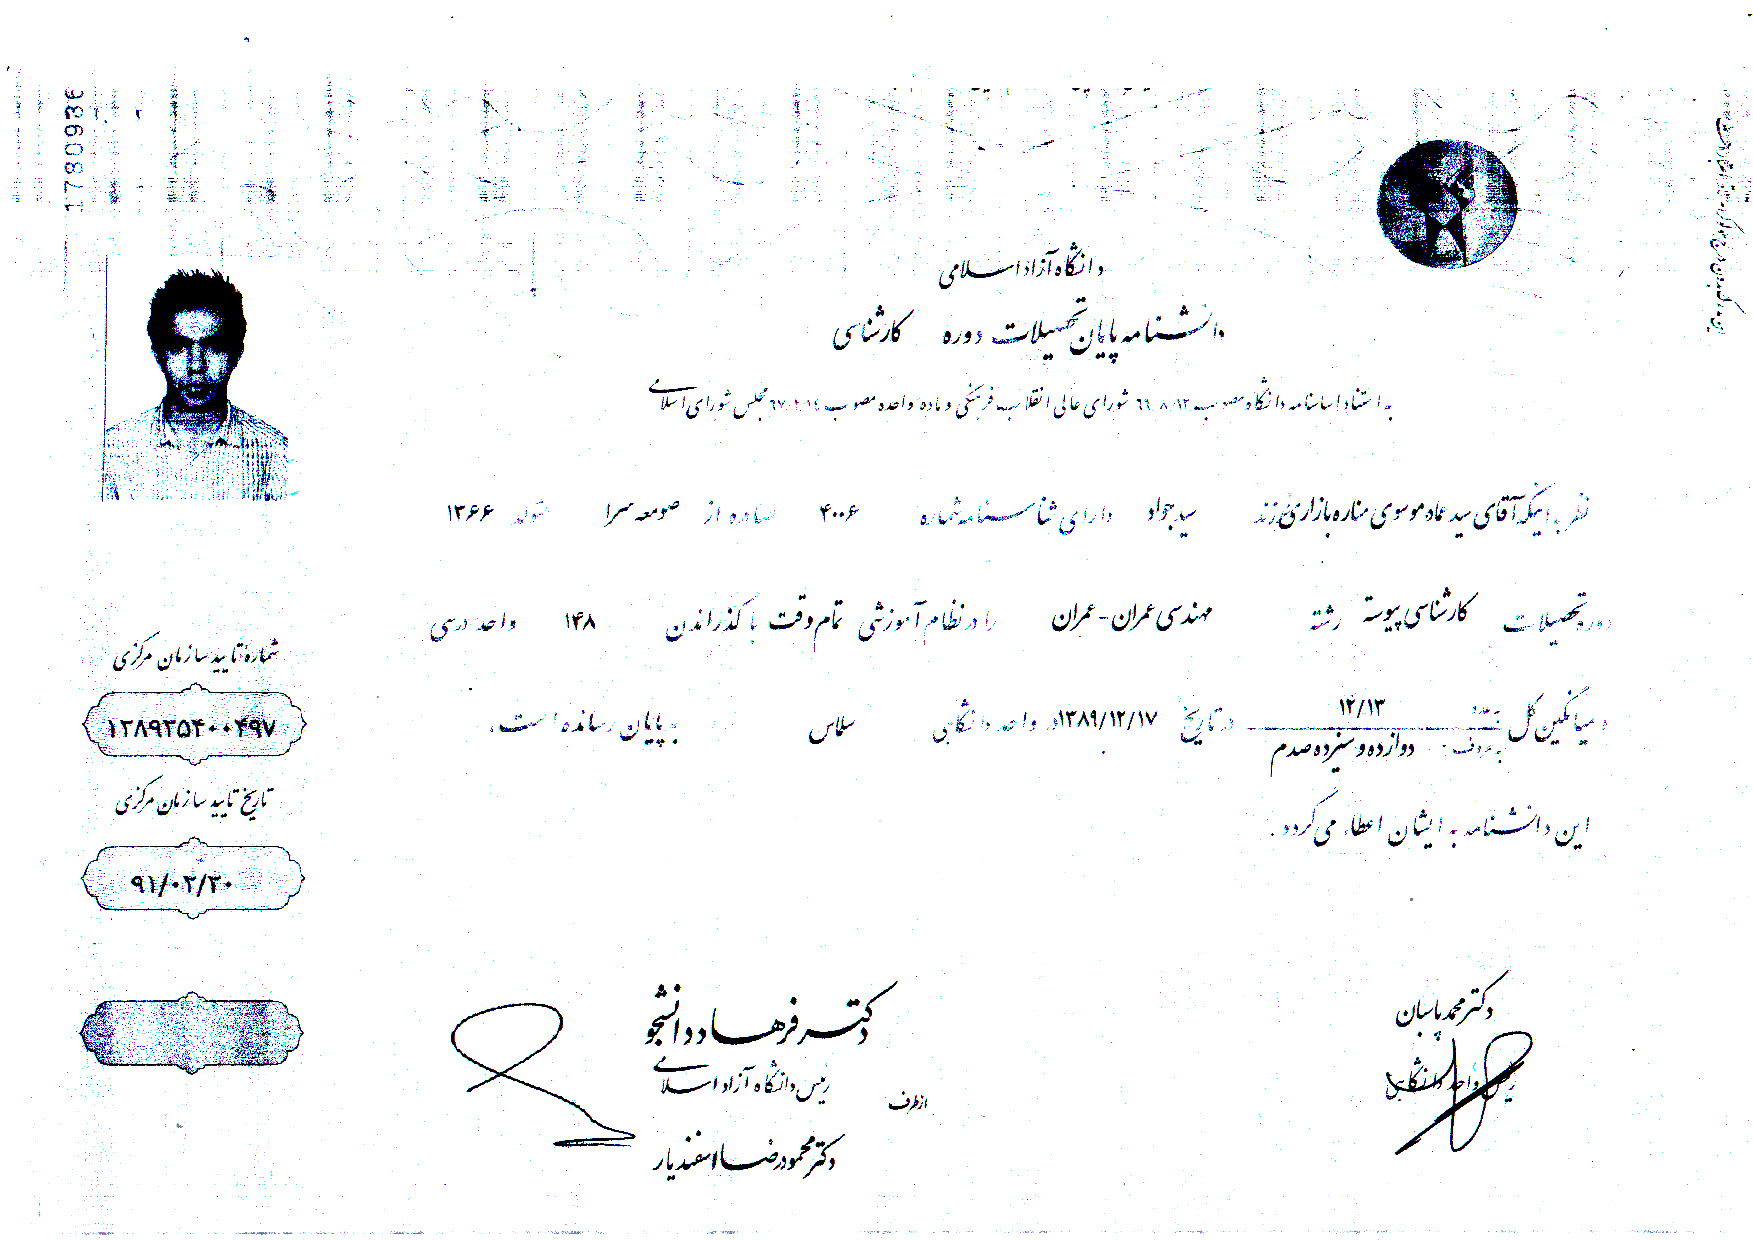 دانشگاه آزاد اسلامی
دانشنامه پایان تحصیلات دوره کارشناسی
به استناد اساسنامه دانشگاه مصوب شورای عالی انقلاب فرهنگی و ماده واحده مصوب مجلس شورای اسلامی
نظر به اینکه آقای سید عماد موسوی مناره بازاری فرزند سید جواد دارای شناسنامه شماره ۴۰۰۶ صادره از صومعه سرا متولد ۱۳۶۶
دوره تحصیلات کارشناسی پیوسته رشته مهندسی عمران - عمران را در نظام آموزشی تمام وقت با گذراندن ۱۴۸ واحد درسی
و میانگین کل به عدد ۱۲/۱۳ به حروف دوازده و سیزده صدم در تاریخ ۱۳۸۹/۱۲/۱۷ در واحد دانشگاهی به پایان رسانده است.
این دانشنامه به ایشان اعطاء می گردد.
دکتر محمد پاسبان
رئیس واحد دانشگاهی
دکتر فرهاد دانشجو
رئیس دانشگاه آزاد اسلامی
از طرف
دکتر محمودرضا اسفندیار
1780986
شماره تایید سازمان مرکزی
۱۳۸۹۲۵۴۰۰۴۹۷
تاریخ تایید سازمان مرکزی